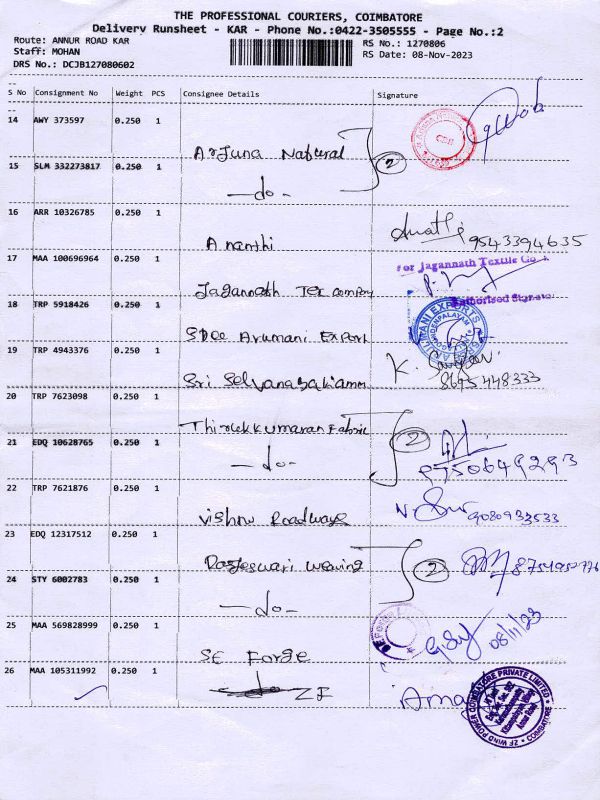 THE PROFESSIONAL COURIERS, COIMBATORE
Delivery Runsheet - KAR - Phone No.:0422-3505555 - Page No.:2
Route: ANNUR ROAD KAR
RS No.: 1270806
Staff: MOHAN
RS Date: 08-Nov-2023
DRS No.: DCJB127080602
S No Consignment No Weight PCS Consignee Details Signature
14 AWY 373597 0.250 1 Arjuna Natural
15 SLM 332273817 0.250 1 -do- 2
16 ARR 10326785 0.250 1 Ananthi 9543394635
17 MAA 100696964 0.250 1 Jagannath Tex company For Jagannath Textile Co.
Authorised Signatory
18 TRP 5918426 0.250 1 Sree Arumani Export
19 TRP 4943376 0.250 1 Sri Selvanayakiamm 8695448333
20 TRP 7623098 0.250 1 Thirukkumaran Fabric
21 EDQ 10628765 0.250 1 -do- 2 9750649293
22 TRP 7621876 0.250 1 Vishnu Roadways 9080933533
23 EDQ 12317512 0.250 1 Rajeswari weaving 2
24 STY 6002783 0.250 1 -do-
25 MAA 569828999 0.250 1 SE Forge 08/11/23
26 MAA 105311992 0.250 1 ZF
ZF WIND POWER COIMBATORE PRIVATE LIMITED
COIMBATORE